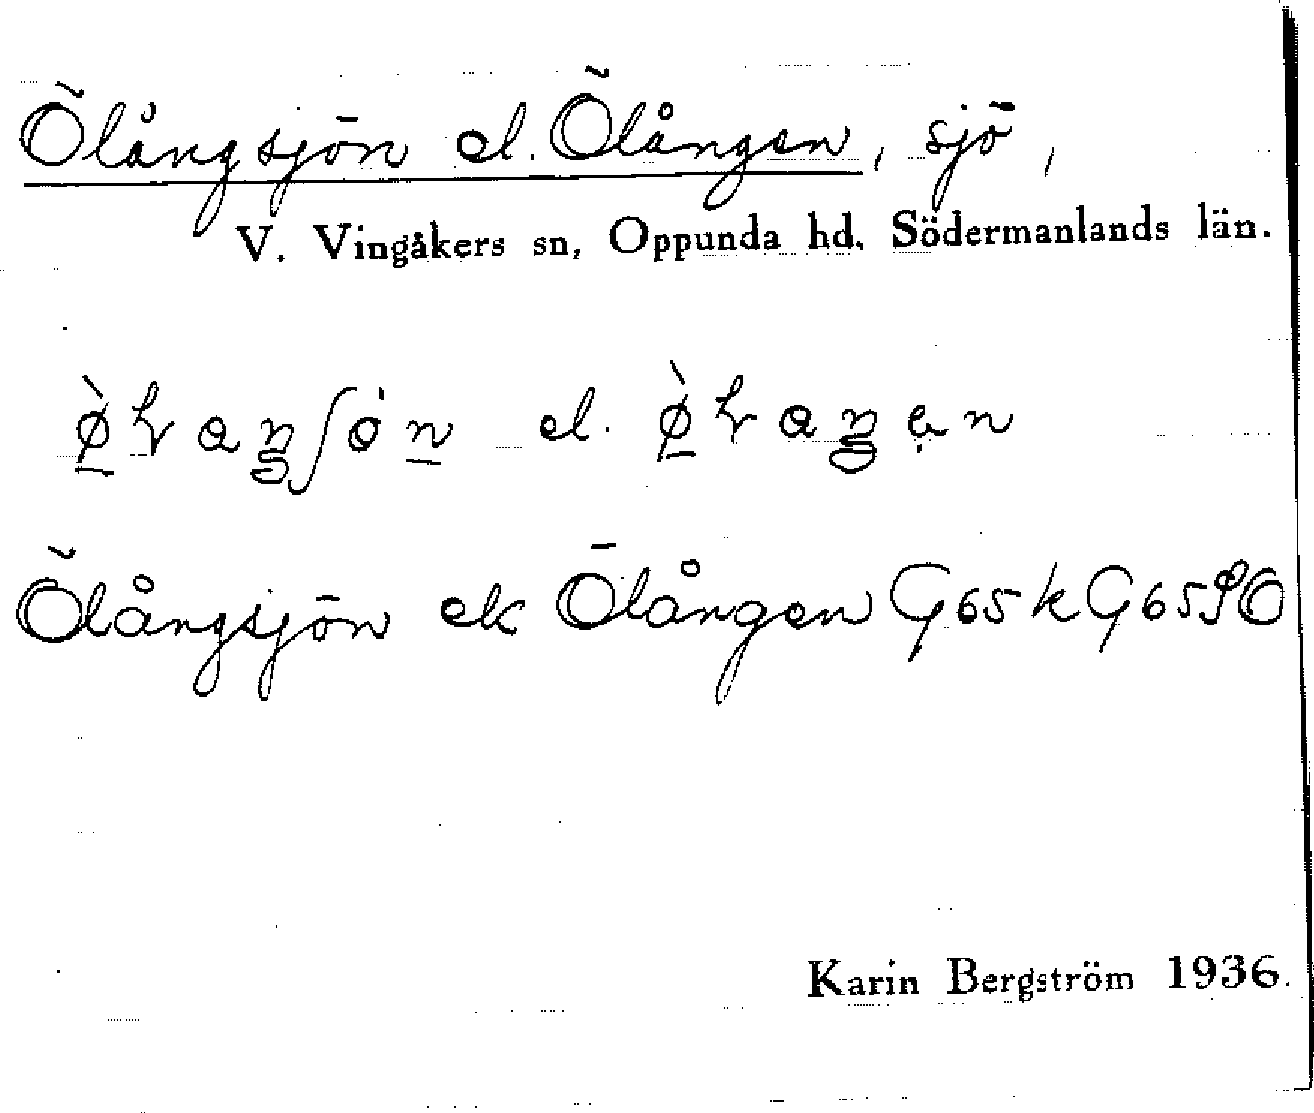 Ölångsjön el. Ölången, sjö,
V. Vingåkers sn, Oppunda hd, Södermanlands län.
el.
Ölångsjön ek Ölången G65 k G65 SO
Karin Bergström 1936.